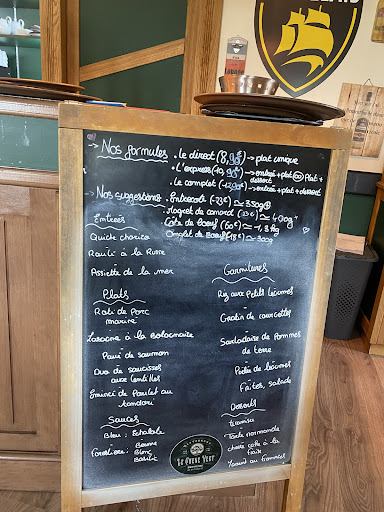 Nos formules
. Le direct (8,90€) → plat unique
. L'express (10,90€) → entrée + plat ou plat + dessert
. Le complet (12,90€) → entrée + plat + dessert
Nos suggestions
. Entrecote (23€) ≃ 350g
. Magret de canard (
) ≃ 400g
Côte de boeuf (60€) ≃ 1,3kg
Onglet de boeuf (18€) ≃ 300g
Entrées
Quiche chorizo
Ravili à la Russe
Assiette de la mer
Plats
Roti de Porc
mariné
Lasagne à la Bolognaise
Pavé de saumon
Duo de saucisses
aux lentilles
Emincé de Poulet au
tandoori
Sauces
Bleu, Echalote
Forestière, Beurre
Blanc
Basilic
Garnitures
Riz aux petits légumes
Gratin de courgettes
Sarladaise de Pommes
de terre
Poêlée de légumes
Frites, salade
Desserts
tiramisu
Tarte normande
RESTAURANT
LE CHENE VERT